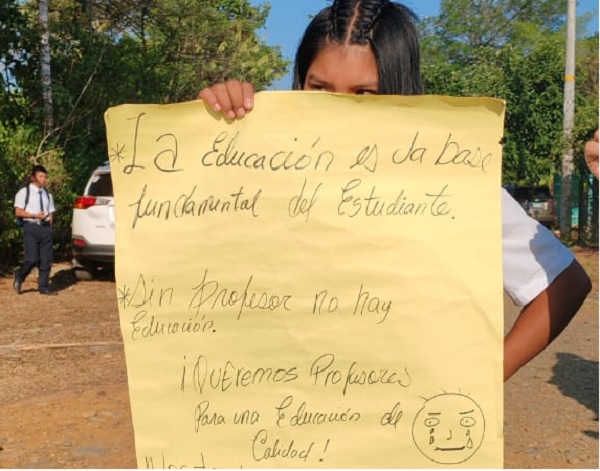 *La Educación es la base
fundamental del Estudiante.
*Sin profesor no hay
Educación.
¡Queremos Profesores
Para una Educación de
Calidad!